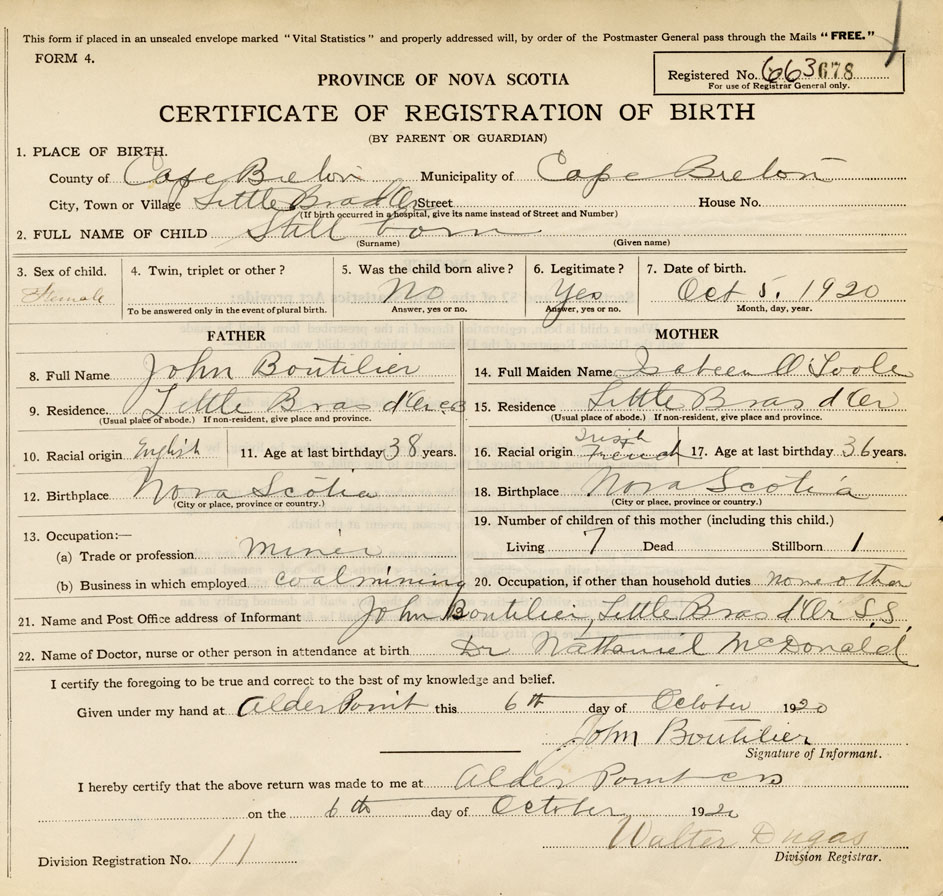 This form if placed in an unsealed envelope marked "Vital Statistics" and properly addressed will, by order of the Postmaster General pass through the Mails "FREE."
FORM 4.
Registered No. 663678
For use of Registrar General only.
PROVINCE OF NOVA SCOTIA
CERTIFICATE OF REGISTRATION OF BIRTH
(BY PARENT OR GUARDIAN)
1. PLACE OF BIRTH.
County of Cape Breton Municipality of Cape Breton
City, Town or Village Little Bras d'Or Street House No.
(If birth occurred in a hospital, give its name instead of Street and Number)
2. FULL NAME OF CHILD Still born
(Surname) (Given name)
3. Sex of child. 4. Twin, triplet or other? 5. Was the child born alive? 6. Legitimate? 7. Date of birth.
Female No Yes Oct 5, 1920
To be answered only in the event of plural birth. Answer, yes or no. Answer, yes or no. Month, day, year.
FATHER MOTHER
8. Full Name John Boutilier 14. Full Maiden Name O'Toole
9. Residence Little Bras d'Or CB 15. Residence Little Bras d'Or
(Usual place of abode.) If non-resident, give place and province. (Usual place of abode.) If non-resident, give place and province.
10. Racial origin English 11. Age at last birthday 38 years. 16. Racial origin Irish French 17. Age at last birthday 36 years.
12. Birthplace Nova Scotia 18. Birthplace Nova Scotia
(City or place, province or country.) (City or place, province or country.)
13. Occupation:— 19. Number of children of this mother (including this child.)
(a) Trade or profession Miner Living 7 Dead Stillborn 1
(b) Business in which employed coal mining 20. Occupation, if other than household duties none other
21. Name and Post Office address of Informant John Boutilier, Little Bras d'Or S.S.
22. Name of Doctor, nurse or other person in attendance at birth Dr Nathaniel McDonald
I certify the foregoing to be true and correct to the best of my knowledge and belief.
Given under my hand at Alder Point this 6th day of October 1920
John Boutilier
Signature of Informant.
I hereby certify that the above return was made to me at Alder Point CB
on the 6th day of October 1920
Walter Dugas
Division Registration No. 11 Division Registrar.